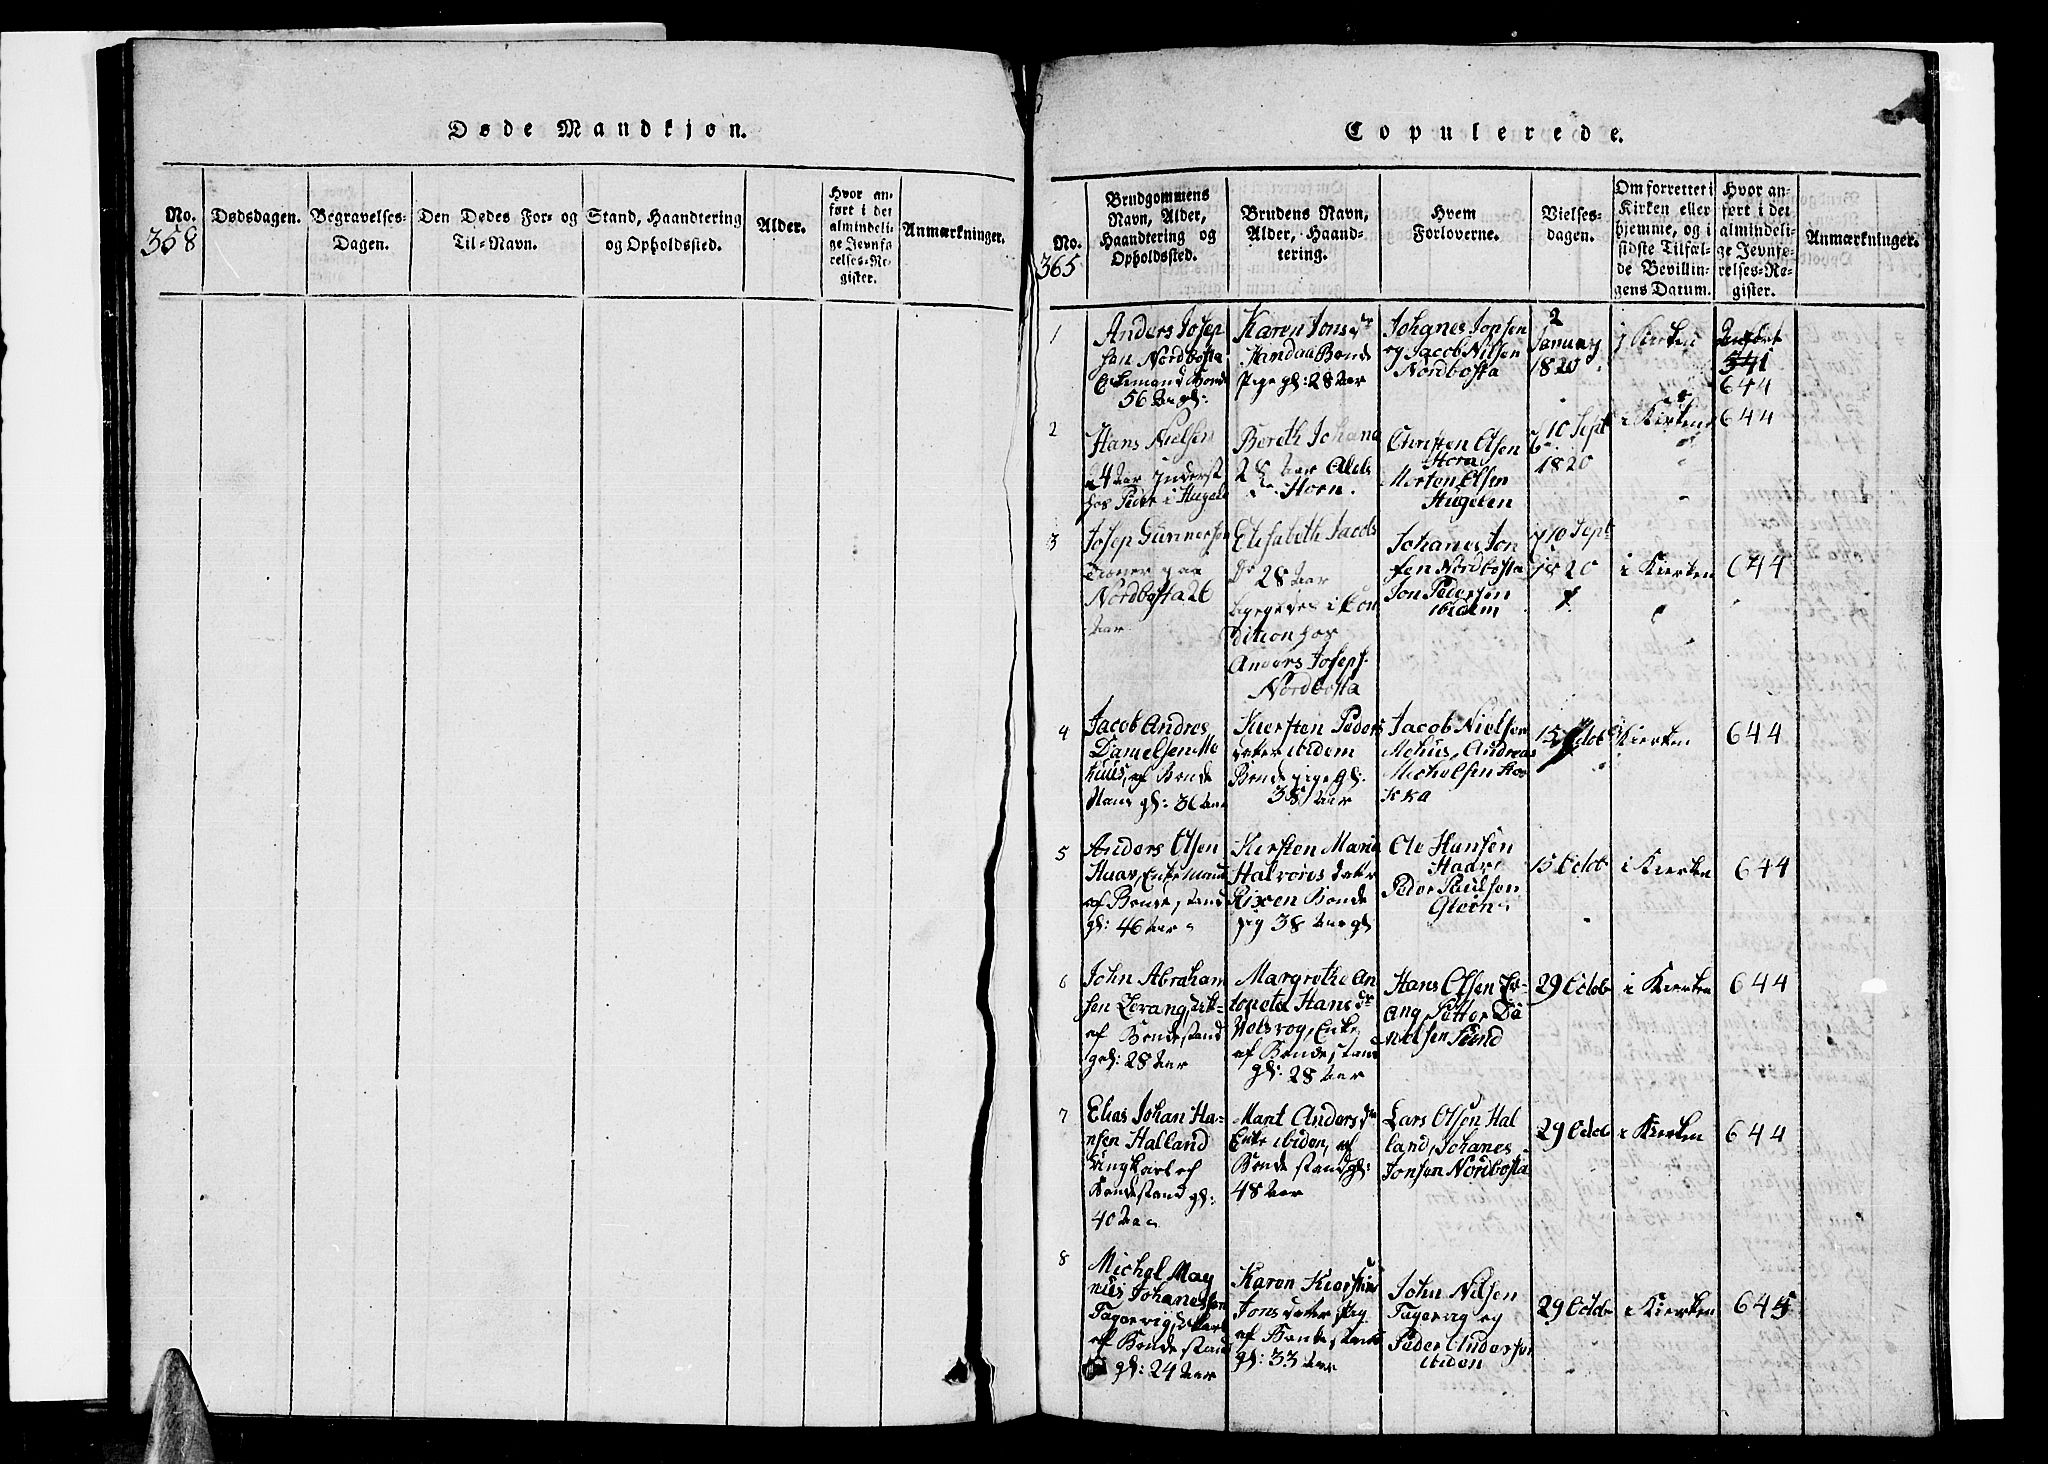 Døde Mandkjøn.
No. 358
Dødsdagen.
Begravelses-
Dagen.
Den Dødes For- og
Til-Navn.
Stand, Haandtering
og Opholdssted.
Alder.
Hvor an-
ført i det
almindeli-
ge Jevnfø-
relses-Re-
gister.
Anmærkninger.
Copulerede.
No. 365
Brudgommens
Navn, Alder,
Haandtering og
Opholdssted.
Brudens Navn,
Alder, Haand-
tering.
Hvem
Forloverne.
Vielses-
dagen.
Om forrettet i
Kirken eller
hjemme, og i
sidste Tilfæl-
de Bevillin-
gens Datum.
Hvor an-
ført i det
almindeli-
ge Jevnfø-
relses-Re-
gister.
Anmærkninger.
1
Anders Josep
sen Nordbosta
Enkemand Bonde
56 Aar gl:
Karen Jons dr
Handaa Bonde
pige gl: 28 Aar
Johanes Jonsen
og Jacob Nilsen
Nordbosta
2
January
1820
i Kirken
541
644
2
Hans Nielsen
24 Aar Inderst
hos Peder i Hugele
Bereth Johana
28 Aar Olels
dr Horn.
Christen Olsen
Horn
Morten Olsen
Hugelen
10 Sept
1820
i Kirken
644
3
Josep Gunnersen
Tiener paa
Nordbosta 26
Aar
Elisabeth Jacobs
Dr 28 Aar
ligeledes i Con
dition hos
Anders Joseps.
Nordbosta
Johanes Jon
sen Nordbosta
Jon Pedersen
ibidem
10 Sept
1820
i Kierken
644
4
Jacob Andres
Danielsen Me
huus, af Bonde
stand gl: 36 Aar
Kiersten Peders
dater ibidem
Bonde pige gl:
38 Aar
Jacob Nielsen
Mehus, Andreas
Michelsen Hos
15 Octob
i Kierken
644
5
Anders Olsen
Huav, Enkemand
af Bonde stand
gl: 46 Aar
Kirsten Maria
Halvors dater
Bonde
pig 38 Aar gl
Ole Hansen
Peder Paulsen
15 Octob
i Kierken
644
6
John Abraham
sen
af Bonde stand
gl: 28 Aar
Margrethe An
toneta Hans dr
Enke
af Bonde stand
gl: 28 Aar
Hans Olsen
ang, Petter Da
nielsen Sund
29 Octob
i Kierken
644
7
Elias Johan Ha-
nsen Halland
Ungkarl af
Bondestand gl:
40 Aar
Marit Anders dr
Enke ibiden, af
Bonde stand gl:
48 Aar
Lars Olsen Hal
land, Johanes
Jonsen Nordbosta
29 Octob
i Kierken
644
8
Michel Mag
nus Johanessen
Fagervig,
af Bonde stand
gl: 24 Aar
Karen Kirstine
Jons dater Pig
af Bonde stand
gl: 33 Aar
John Nilsen
Fagervig og
Peder Andersen
ibiden
29 Octob
i Kierken
645